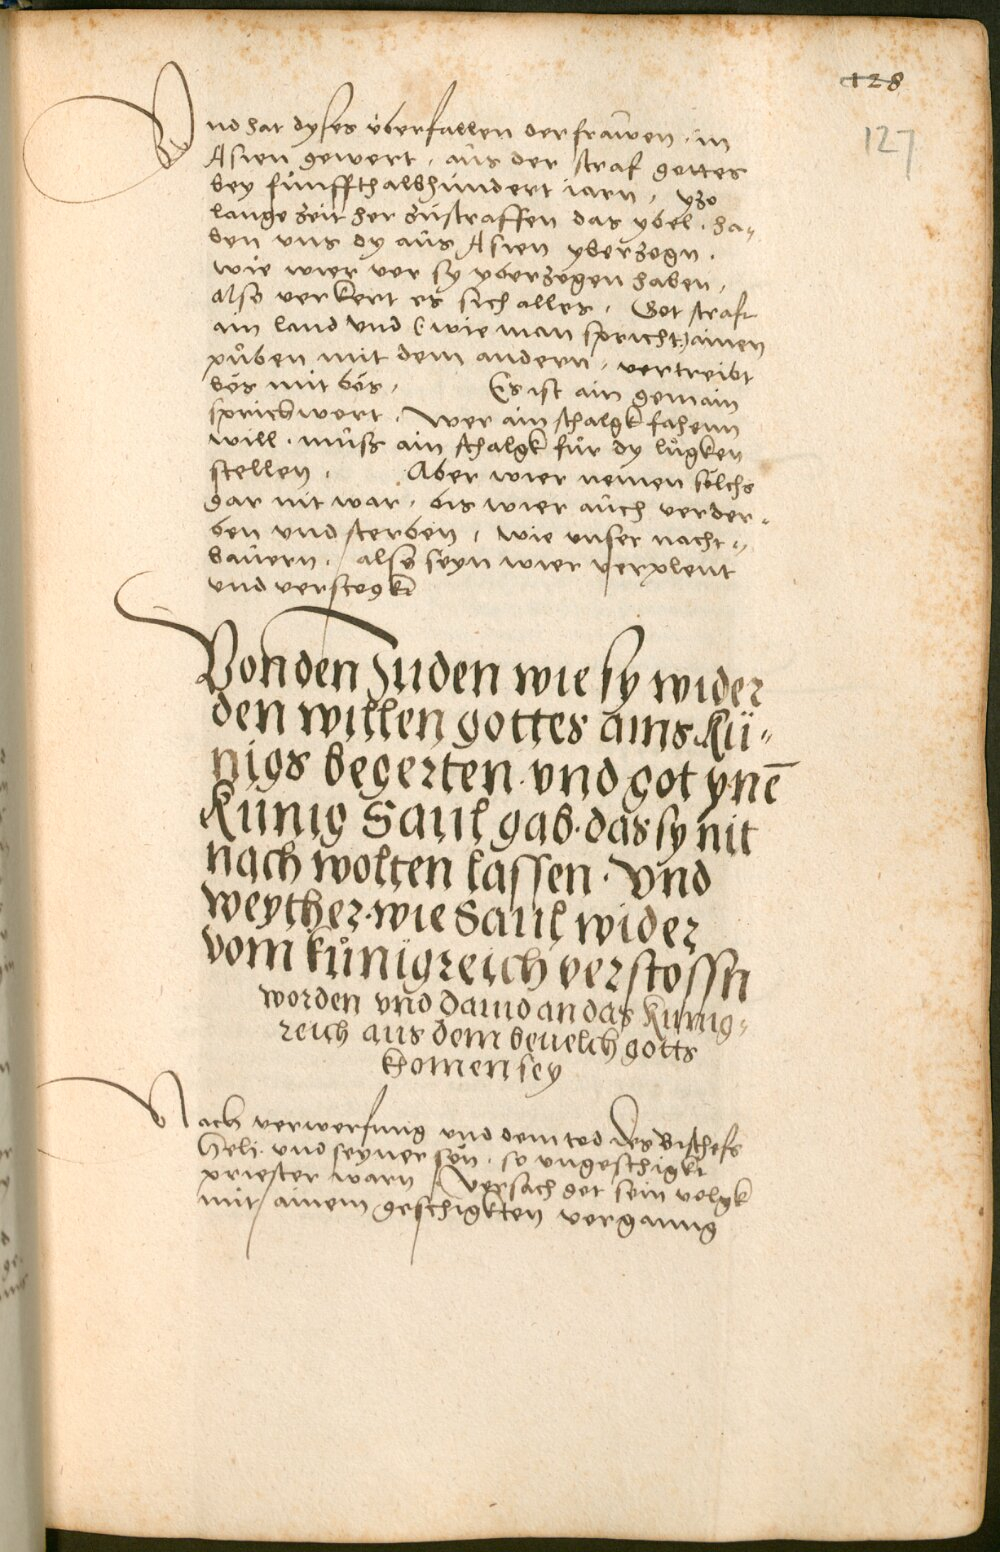 128
127
Und hat dyses überfallen der frawen · in
Asien gewert, aus der straf gottes
bey fünffthalbhundert iarn, yzo
lange zeit her zustraffen das ybel · ha-
ben uns dy aus Asien yberzogn ·
wie wier vor sy yberzogen haben,
also verkert es sich alles, Got straft
ain land und (wie man spricht) ainen
püben mit dem andern, vertreibt
bös mit bös, Es ist ain gemain
sprichwort, Wer ain schalgk fahenn
will · muß ain schalgk für dy lugken
stellen, Aber wier nemen sölchs
gar nit war, bis wier auch verder-
ben und sterben, wie unser nacht-
bauern, also seyn wier verplent
und verstogkt
Von den Juden wie sy wider
den willen gottes ains Kü-
nigs begerten · vnd got ynē
Künig Saul gab · das sy nit
nach wolten lassen · Vnd
weyther · wie Saul wider
vom künigreich verstossn
worden vnd dauid an das Kunig-
reich aus dem beuelch gotts
khomen sey
Nach verwerfung und dem tod des Bischofs
Heli · und seyner sön · so ungeschigkt
priester warn, Versach got sein volgk
mit ainem geschigkten vorganng